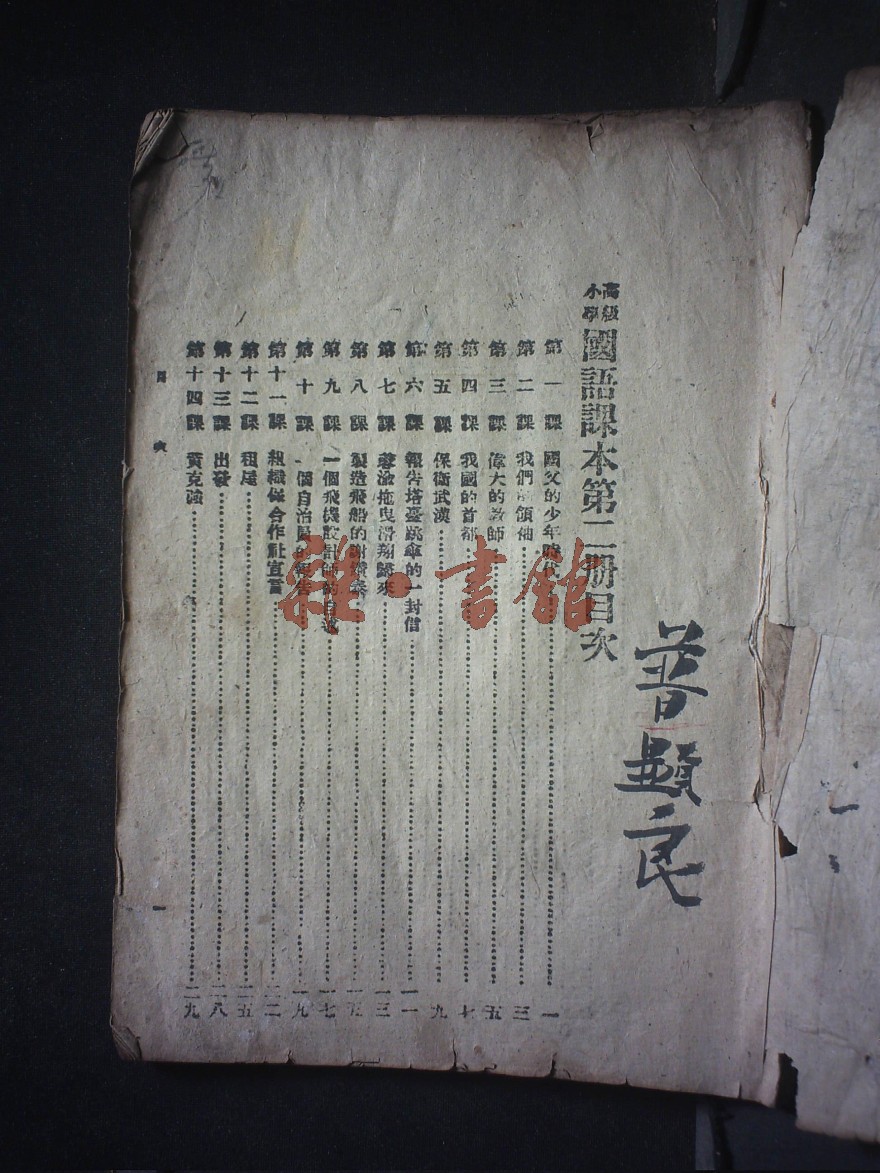 高級小學國語課本第二册目次
第一課 國父的少年時代 一
第二課 我們的領袖 三
第三課 偉大的教師 五
第四課 我國的首都 七
第五課 保衛武漢 九
第六課 報告塔臺跳傘的一封信 一一
第七課 蓉渝拖曳滑翔歸來 一三
第八課 製造飛船的謝纘泰 一五
第九課 一個飛機設計師的自述 一七
第十課 一個自治員的報告 一九
第十一課 組織保合作社宣言 二二
第十二課 租屋 二五
第十三課 出發 二八
第十四課 黃克強 二九
目次
一
普顯良
雜·書館